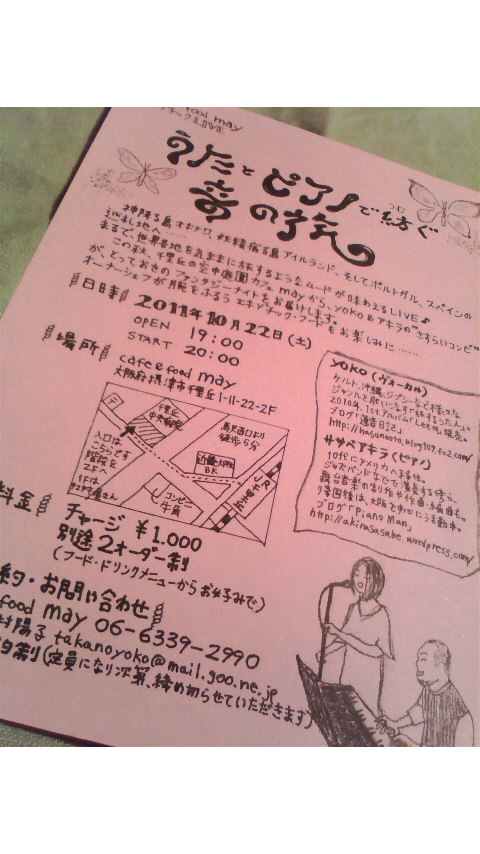 food may
LIVE
うたとピアノで紡ぐ
つむ
音の旅
神降る島オキナワ、妖精宿る島アイルランド、そしてポルトガル、スペインの
巡礼地へ……
まるで、世界各地を気ままに旅するようなムードが味わえるLIVE♪
この秋、千里丘の空中庭園カフェmayから、yoko&アキラの"さすらいコンビ"
が、とっておきのファンタジーナイトをお届けします。
オーナーシェフが腕をふるうエキゾチック・フードもお楽しみに……
日時 2011年10月22日(土)
OPEN 19:00
START 20:00
場所 cafe&food may
大阪府摂津市千里丘1-11-22-2F
千里丘
中央病院
入口は
こちらです
階段を
2Fへ
1Fは
近畿大阪
BK
コンビニ
牛角
JR千里丘
徒歩5分
料金 チャージ ¥1.000
別途2オーダー制
(フード・ドリンクメニューからお好みで)
約・お問い合わせ
food may 06-6339-2990
村陽子 takanoyoko@mail.goo.ne.jp
制(定員になり次第、締め切らせていただきます)
yoko(ヴォーカル)
ケルト、沖縄、ジプシーなど様々な
ジャンルを歌いこなす"旅するうた人"。
2010年、1st.アルバム「Leem」発売。
http://hasunooto.blog109.fc2.com/
ササベアキラ(ピアノ)
10代にアメリカへ移住。
ジャズバンドなどで演奏する傍ら、
帰国後は、大阪を中心に活動中。
ブログ「Piano Man」
http://akirasasabe.wordpress.com/